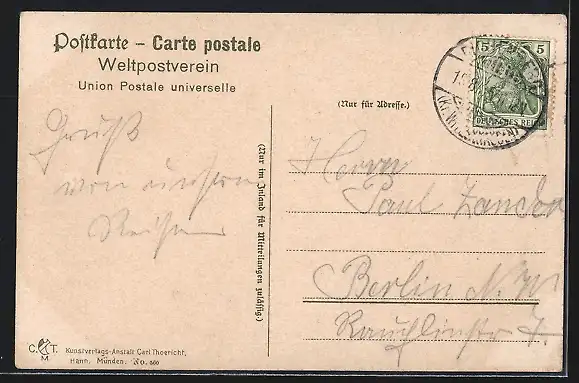 Postkarte – Carte postale
Weltpostverein
Union Postale universelle
(Nur für Adresse.)
5 5
DEUTSCHES REICH
Gruß
von unsern
(Nur im Inland für Mitteilungen zulässig)
Herrn
Paul Zander
Berlin N.W
C. T.
M.
Kunstverlags-Anstalt Carl Thoericht,
Hann. Münden. No. 466